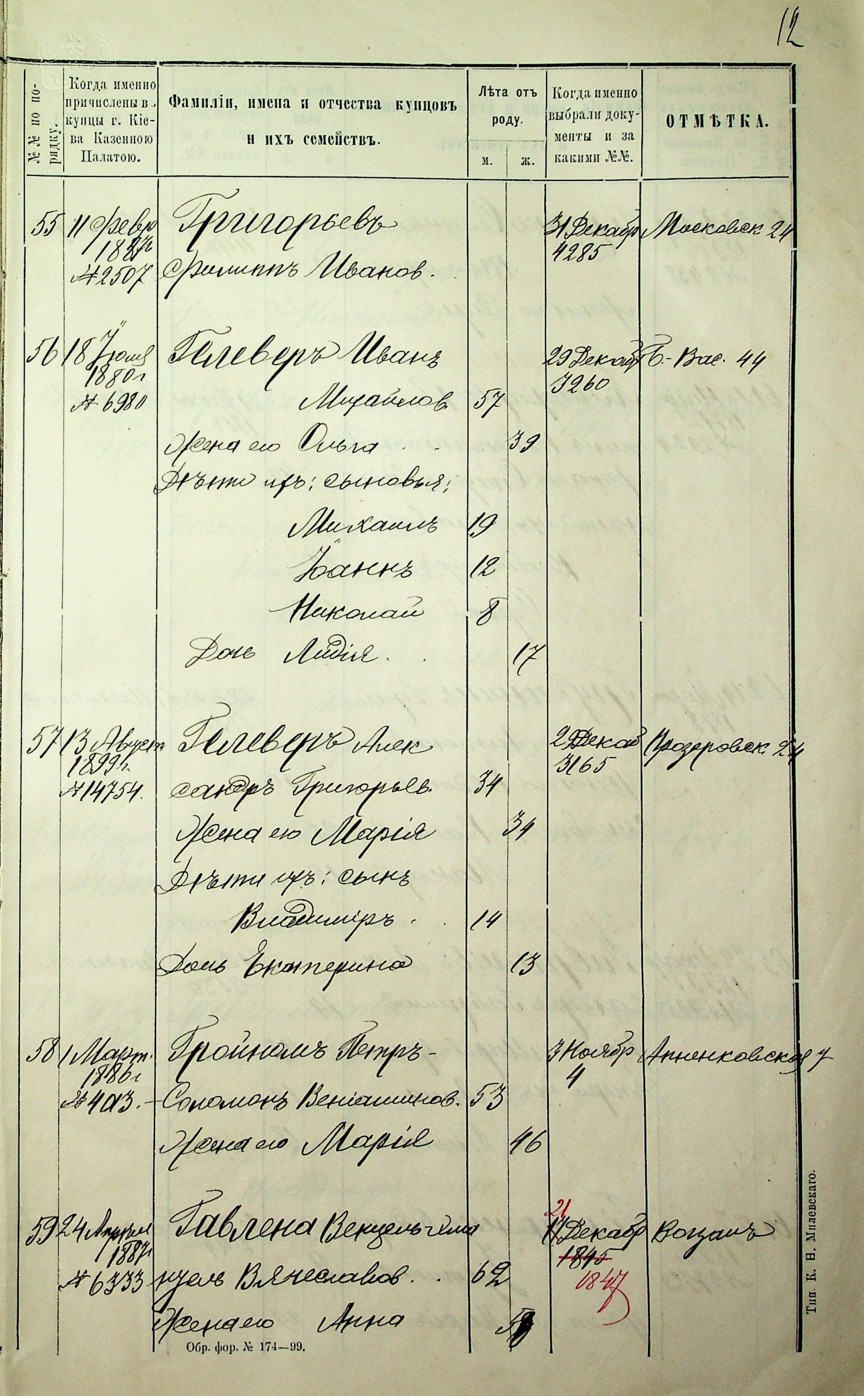 12
№№ по по-
рядку.
Когда именно
причислены въ
купцы г. Кіе-
ва Казенною
Палатою.
Фамиліи, имена и отчества купцовъ
и ихъ семействъ.
Лѣта отъ
роду.
м.
ж.
Когда именно
выбрали доку-
менты и за
какими №№.
ОТМѢТКА.
55 11 Февр Григорьевъ 31 Декабр Московск 24
4285
№ 2507 Филиппъ Иванов.
56 18 Іюля Гелеверъ Иванъ 29 Декаб Б.-Вас. 44
1880 г 3260
№ 6980 Михайлов 57
Жена его Ольга 39
Дѣти ихъ: сыновья:
Михаилъ 19
Іоаннъ 12
Николай 8
Дочь Лидія 17
57 13 Август Гелеверъ Алек 29 Декаб Прозоровск 24
1899 г. 3165
№ 14754. сандръ Григорьев 34
Жена его Марія 34
Дѣти ихъ: сынъ
Владиміръ 14
Дочь Екатерина 13
58 1 Март. Гройномъ Петръ- 3 Ноябр Анненковская 7
1886 г 4
№ 403.- Соломонъ Веніаминов. 53
Жена его Марія 46
21
59 24 Апрѣля Гавлена Венцель 17 Декабр Вокзалъ
1887 г 1845
№ 6333 нцель Вячеславов. 62 1847
Жена его Анна
Обр. фор. № 174—99.
Тип. К. Н. Милевскаго.